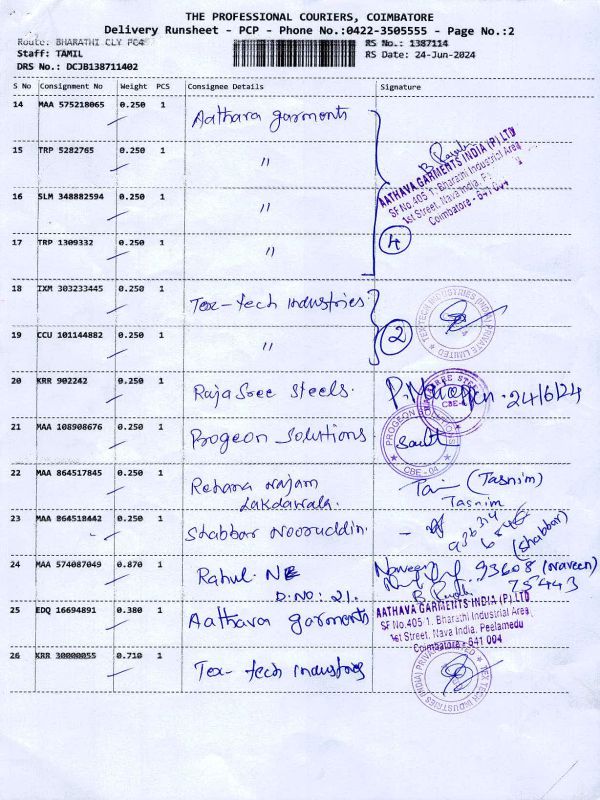 THE PROFESSIONAL COURIERS, COIMBATORE
Delivery Runsheet - PCP - Phone No.:0422-3505555 - Page No.:2
Route: BHARATHI CLY PC4
RS No.: 1387114
Staff: TAMIL
RS Date: 24-Jun-2024
DRS No.: DCJB138711402
S No Consignment No Weight PCS Consignee Details Signature
14 MAA 575218065 0.250 1 Aathava garments
15 TRP 5282765 0.250 1 "
AATHAVA GARMENTS INDIA (P) LTD
SF No.405 1, Bharathi Industrial Area
1st Street, Nava India,
Coimbatore - 641 004
16 SLM 348882594 0.250 1 "
17 TRP 1309332 0.250 1 "
4
18 IXM 303233445 0.250 1 Tex-tech industries
TEXTECH INDUSTRIES (INDIA) PRIVATE LIMITED
19 CCU 101144882 0.250 1 "
2
20 KRR 902242 0.250 1 Raja Sree Steels. 24/6/24
CBE-4
21 MAA 108908676 0.250 1 Progeon Solutions
PROGEON SOLUTIONS
CBE - 04
22 MAA 864517845 0.250 1 Rehana Najam
Lakdawala.
(Tasnim)
Tasnim
23 MAA 864518442 0.250 1 Shabbar Nooruddin.
(Shabbar)
24 MAA 574087049 0.870 1 Rahul. NE
D.NO: 21.
Naveen 93608 (Naveen)
75443
25 EDQ 16694891 0.380 1 Aathava garments
AATHAVA GARMENTS INDIA (P) LTD
SF No.405 1, Bharathi Industrial Area
1st Street, Nava India, Peelamedu
Coimbatore - 641 004
26 KRR 30000055 0.710 1 Tex-tech industries
TEXTECH INDUSTRIES (INDIA) PRIVATE LIMITED